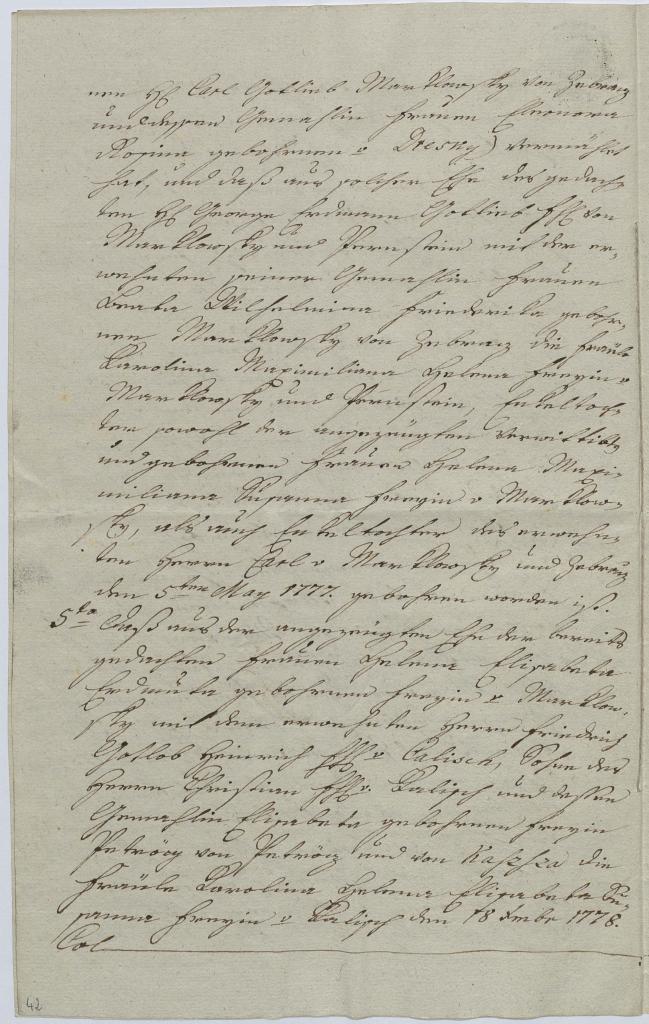 nen H. Carl Gotlieb Marklowsky von Zebracz
und dessen Gemahlin Frauen Eleonora
Rosina gebohrnen v Dresky) vermählet
hat, und daß aus solcher Ehe des gedach-
ten H. George Erdmann Gotlieb von
Marklowsky und Pernstein mit der er-
wehnten seiner Gemahlin Frauen
Beata Wilhelmina Friederika gebohr-
nen Marklowsky von Zebracz die Fräule
Karolina Maximiliana Helena Freyin v
Marklowsky und Pernstein, Enkeltoch-
ter sowohl der angezeugten verwittib-
und gebohrnen Frauen Helena Maxi-
miliana Susanna Freyin v Marklow-
sky, als auch Enkeltochter des erwehn-
ten Herrn Carl v Marklowsky und Zebracz
den 5ten May 1777. gebohren worden ist.
5to Daß aus der angezeugten Ehe der bereits
gedachten Frauen Helena Elisabeta
Erdmuta gebohrnen Freyin v Marklow-
sky mit dem erwehnten Herrn Friedrich
Gotlob Heinrich v Calisch, Sohne des
Herrn Christian v. Kalisch und dessen
Gemahlin Elisabeta gebohrnen Freyin
Petröcz von Petröcz und von Kaszsza die
Fräule Karolina Helena Elisabeta Su-
sanna Freyin v Kalisch den 18 1778.
Col
42